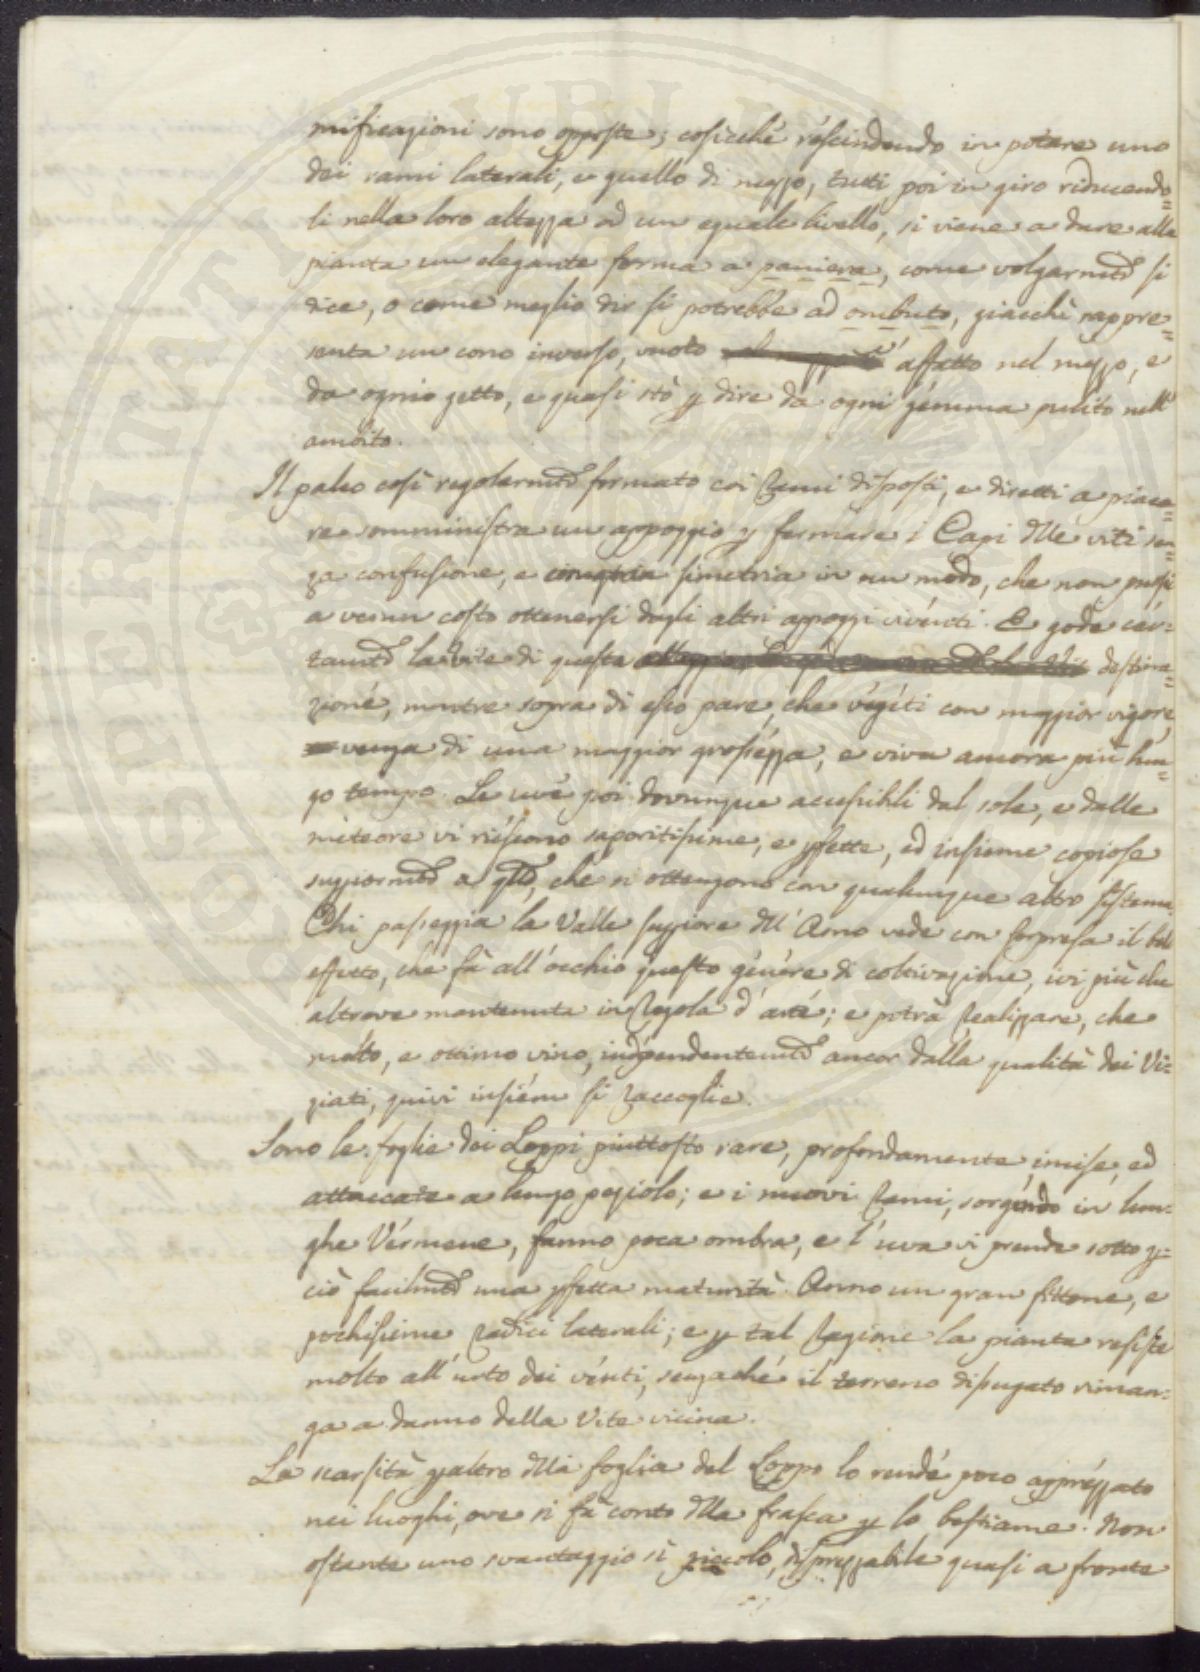 mificazioni sono opposte; cosicchè rescindendo in potare uno
dei rami laterali, e quello di mezzo, tutti poi in giro riducendo=
li nella loro altezza ad un eguale livello, si viene a dare alla
pianta un elegante forma a paniera, come volgarmte si
dice, o come meglio dir si potrebbe ad ombuto, giacchè rappre=
senta un cono inverso, vuoto affatto nel mezzo, e
da ognio getto, e quasi stò p dire da ogni gemma pulito nell'
ambito.
Il palco così regolarmte formato coi Rami disposti, e diretti a piace=
re somministra un appoggio p fermare i Capi dlle viti sen=
za confusione, e simetria in un modo, che non puossi
a verun costo ottenersi dagli altri appoggi viventi. E gode cer=
tamte la vite di questa destina=
zione, mentre sopra di esso pare, che vegeti con maggior vigore,
venga di una maggior grossezza, e viva ancora più lun=
go tempo. Le uve poi dovunque accessibili dal sole, e dalle
meteore vi riescono saporitissime, e pfette, ed insieme copiose
supiormte a qllo, che si ottengono con qualunque altro sistema.
Chi passeggia la Valle supiore dll' Arno vede con sorpresa il bel
effetto, che fà all' occhio questo genere di coltivazione, ivi più che
altrove mantenuta in Regola d' arte; e potrà Realizzare, che
molto, e ottimo vino, independentemte ancor dalla qualità dei Vi=
ziati, quivi insiem si raccoglie.
Sono le foglie dei Loppi piuttosto rare, profondamente incise, ed
attaccate a lungo peziolo; e i nuovi Rami, sorgendo in lun=
ghe Vermene, fanno poca ombra, e l' uva vi prende sotto p=
ciò facilmte una pfetta maturità. Anno un gran fittone, e
pochissime Radici laterali; e p tal Ragione la pianta resiste
molto all' urto dei venti, senzachè il terreno dissugato riman=
ga a danno della Vite vicina.
La scarsità paltro dlla foglia del Loppo lo rende poco apprezzato
nei luoghi, ove si fà conto dlla frasca p lo bestiame. Non
ostante uno svantaggio sì piccolo, disprezzabile quasi a fronte